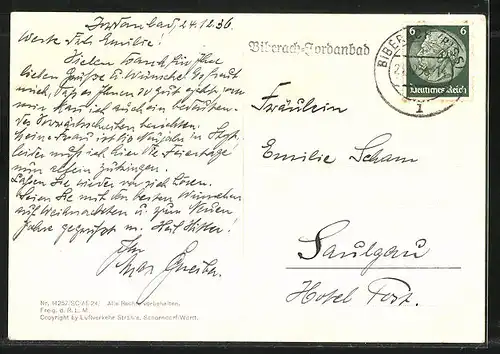 Jordanbad, 24.12.36.
Werte Frl. Emilie!
Vielen Dank für Ihre
lieben Grüße u. Wünsche. Es freut
mich, daß es Ihnen so gut geht, von
mir kann ich auch ein
des Vorwärtsschreiten berichten.
Meine Frau ist bis Neujahr in
leider muß ich hier die Feiertage
nun allein
Lassen Sie wieder von sich hören.
Seien Sie mit den besten Wünschen
auf Weihnachten u. zum Neuen
Jahre gegrüßt m. Heil Hitler!
Ihr
Max
Nr. Alle Rechte vorbehalten.
Freig. d. R.L.M.
Copyright by Luftverkehr Strähle, Schorndorf-Württ.
Biberach-Jordanbad
BIBERACH (RISS)
1
6 6
Deutsches Reich
Fräulein
Emilie Scham
Saulgau
Hotel Post.